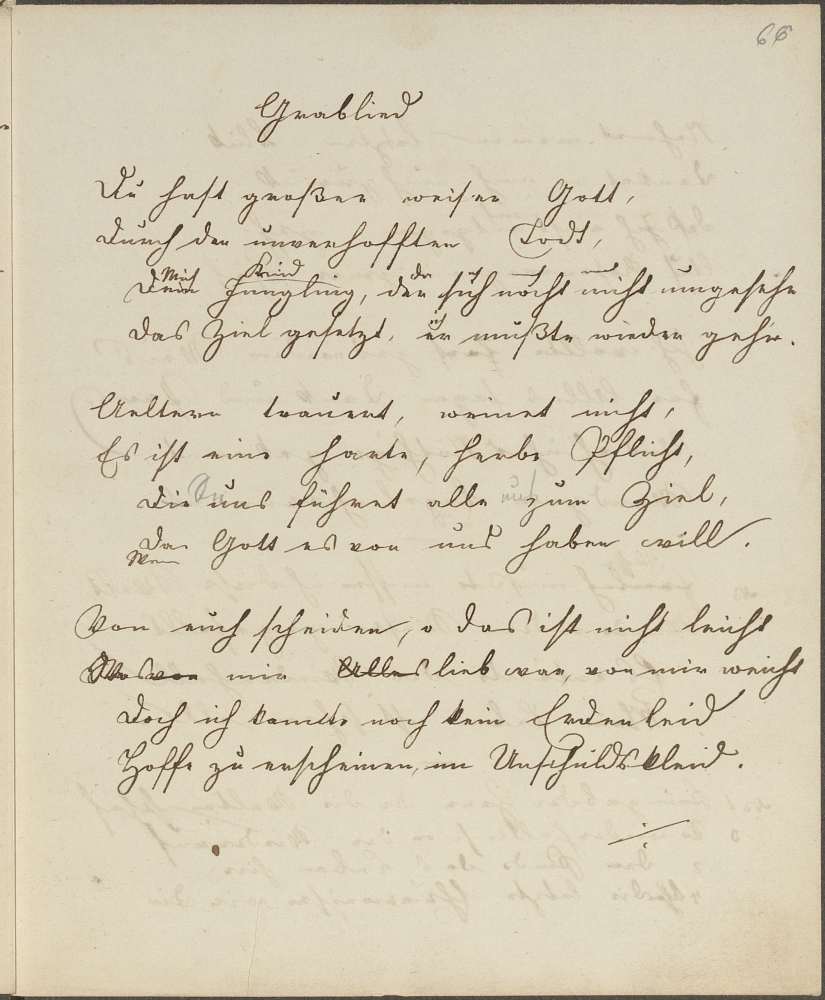 66
Grablied
Du hast großer weiser Gott,
Durch den unverhofften Todt,
Mich Kind
Dem Jüngling, der sich noch nicht umgesehn
Das Ziel gesetzt, er mußte wieder gehn.
Aeltern trauert, weinet nicht,
Es ist eine harte, herbe Pflicht,
Die uns führet alle zum Ziel,
Das Gott es von uns haben will.
Wenn
Von euch scheiden, o das ist nicht leicht
Was von mir Alles lieb war, von mir weicht
Doch ich kannte noch kein Erdenleid
Hoffe zu erscheinen, im Unschuldskleid.